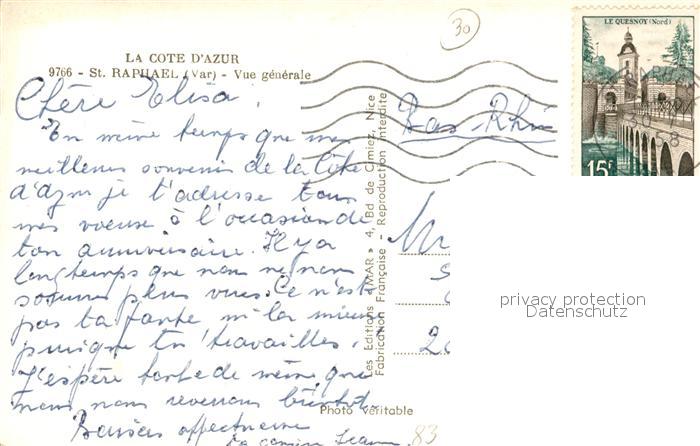 30
LE QUESNOY (Nord)
LA COTE D'AZUR
9766 - St. RAPHAEL (Var) - Vue générale
Chère Elisa,
En même temps que mes
meilleurs souvenir de la Côte
d'azur je t'adresse tous
mes voeux à l'occasion de
ton anniversaire. Il y a
longtemps que nous ne nous
sommes plus vues. Ce n'est
pas ta faute ni la mienne
puisque tu travailles.
J'espère tout de même que
nous nous reverrons bientôt
Baisers affectueux
ta cousine Jeanne.
Les Editions "MAR" 4, Bd de Cimiez, Nice
Fabrication Française - Reproduction Interdite
Bas-Rhin
15f
privacy protection
Datenschutz
Photo véritable
83